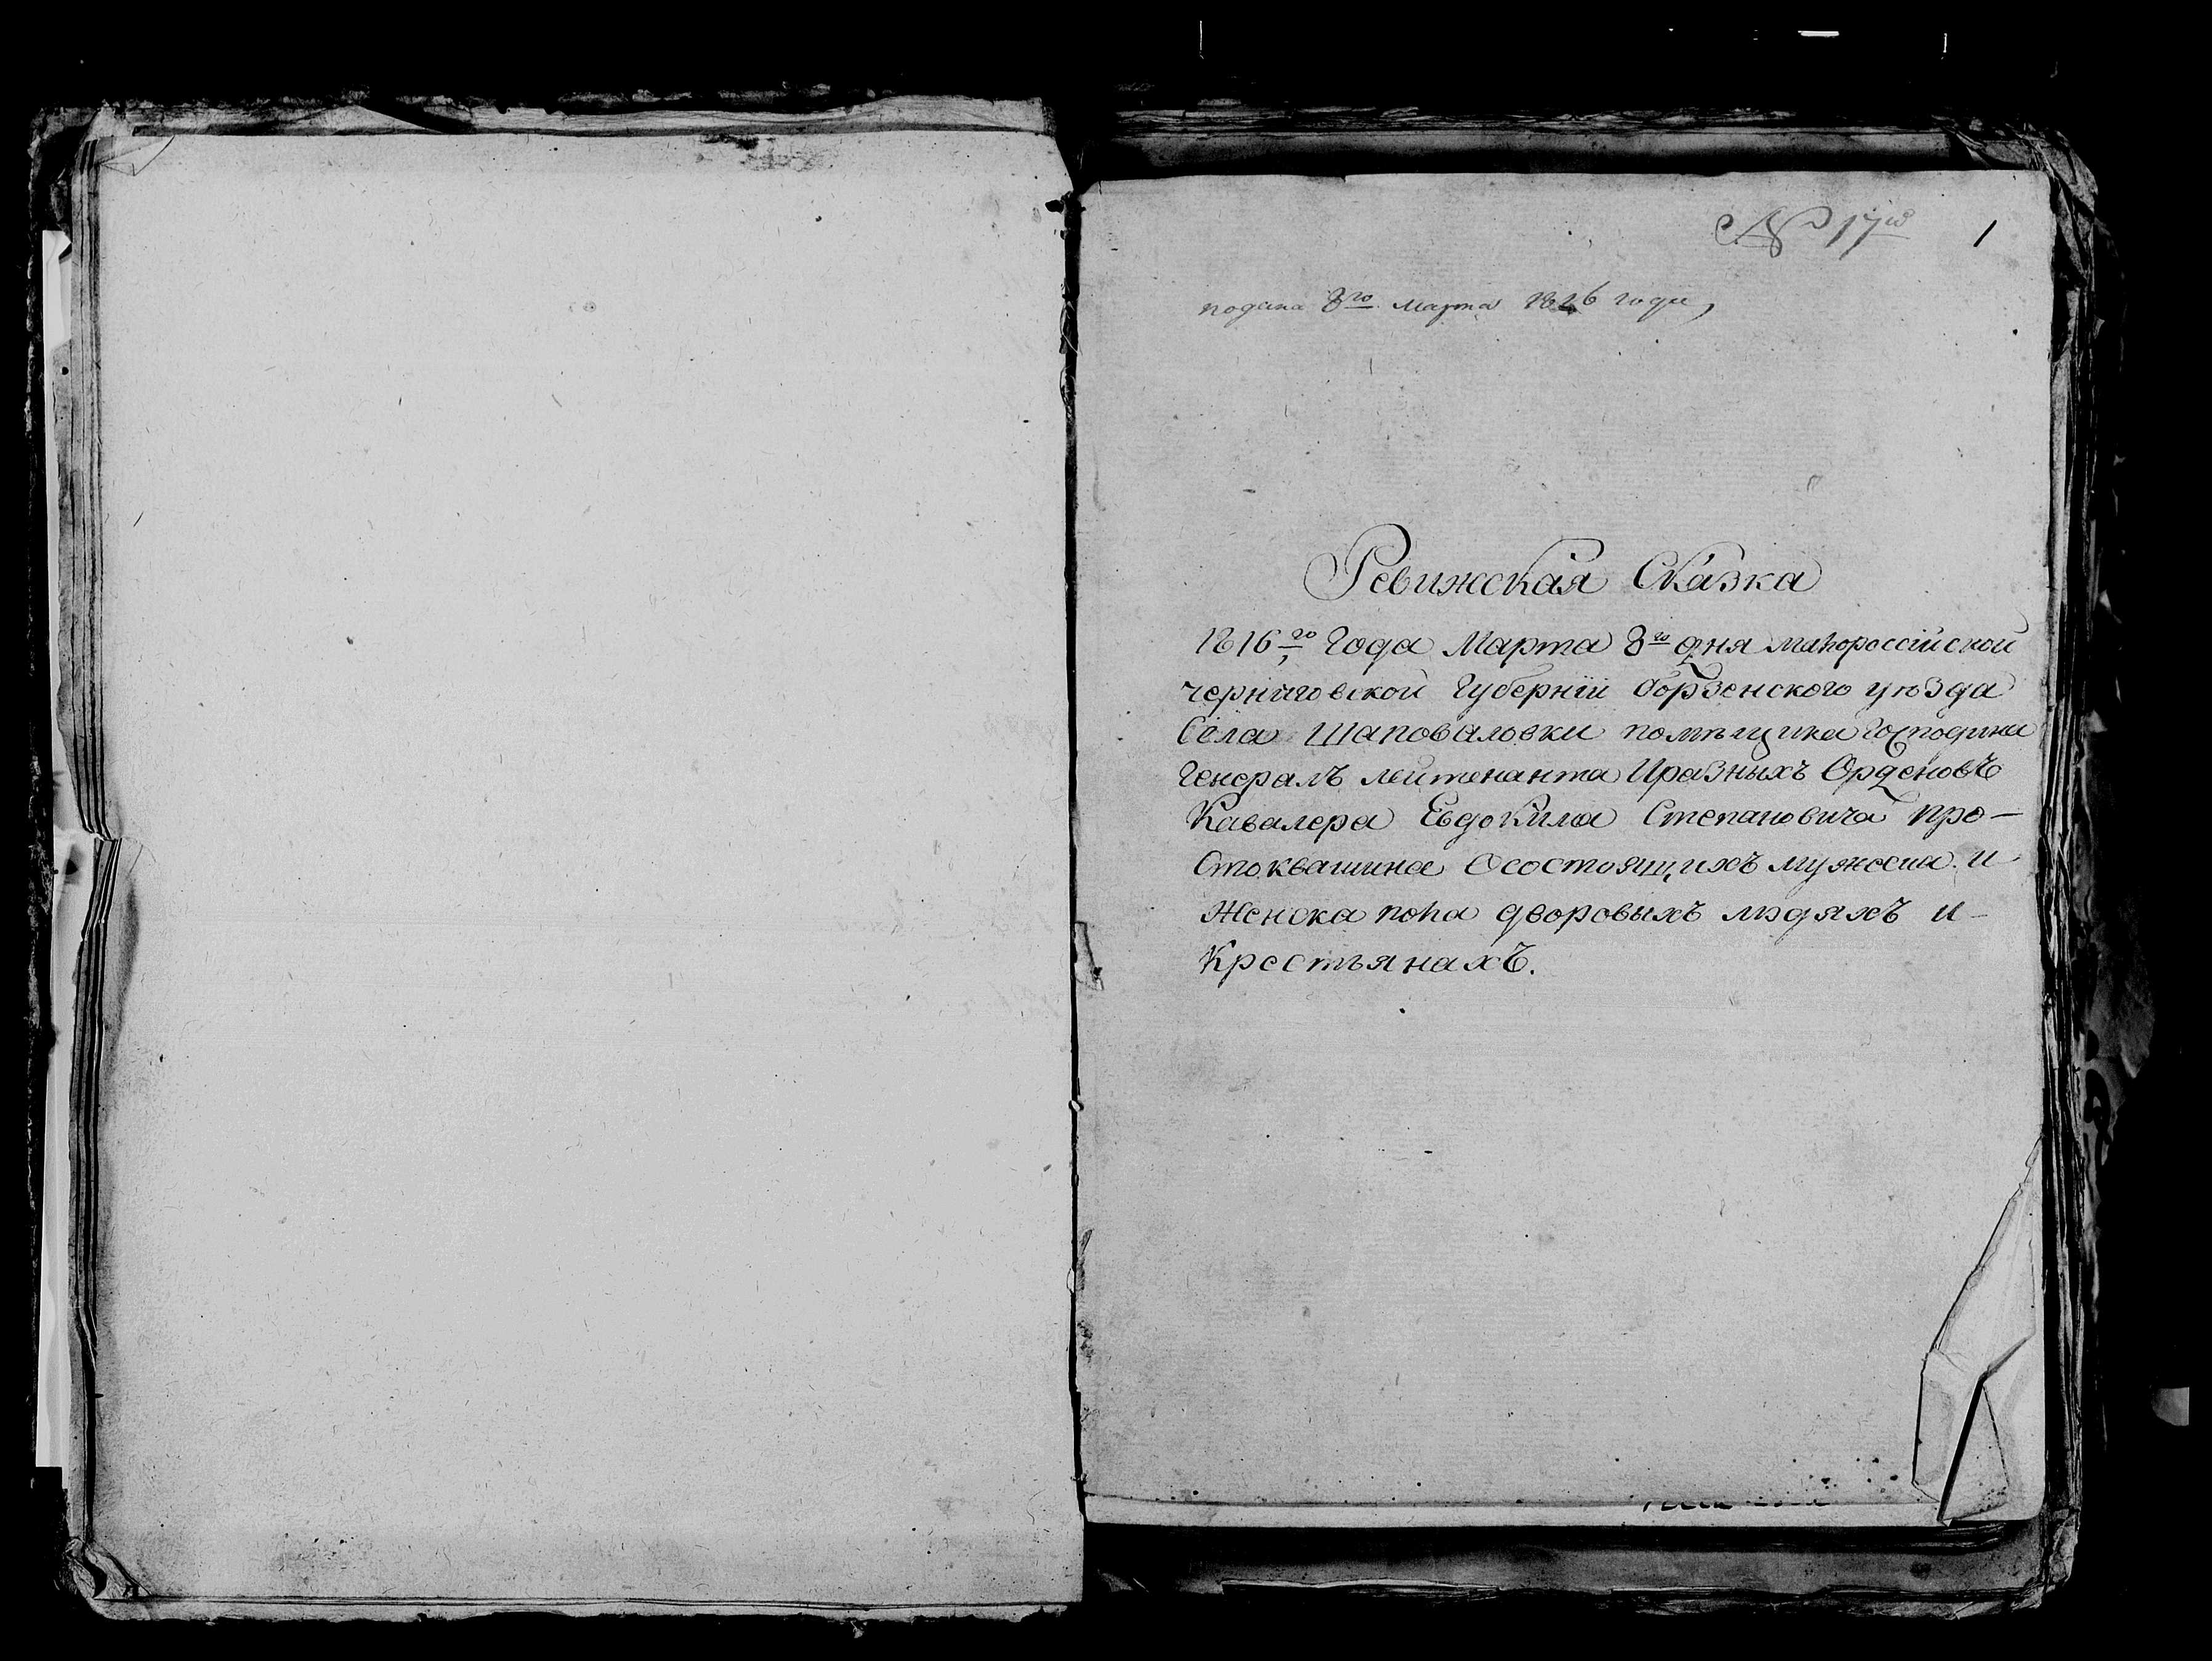 № 17й
1
подана 8го марта 1816 года,
Ревижская Сказка
1816го Года Марта 8го дня малороссійской
черниговской Губерніи борзенского уѣзда
Села Шаповаловки помѣщика Господина
Генералъ лейтенанта Иразныхъ Орденовъ
Кавалера Евдокима Степановича про-
Стоквашина Осостоящихъ мужеска и
Женска пола дворовыхъ людяхъ и-
Крестьянахъ.